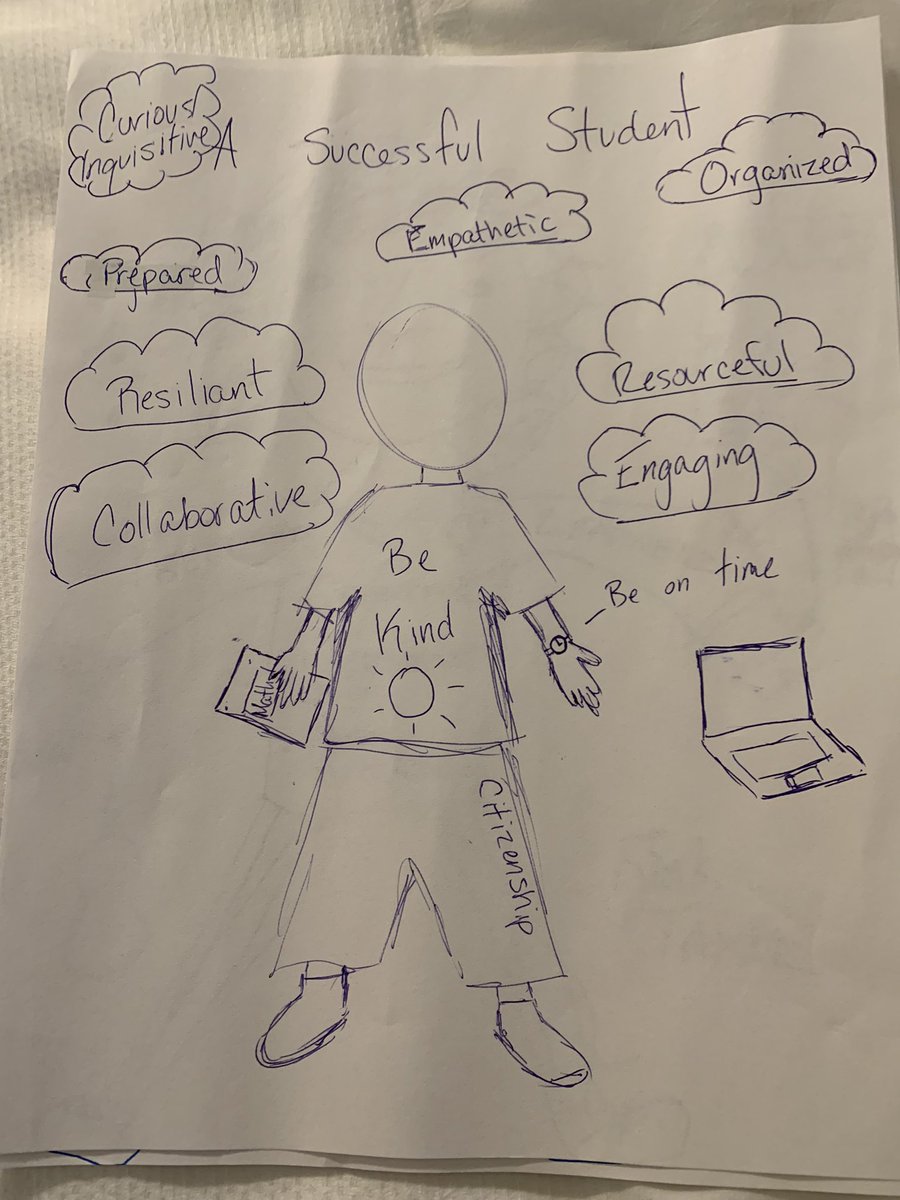 A Successful Student
Curious
Inquisitive
Organized
Empathetic
Prepared
Resiliant
Resourceful
Collaborative
Engaging
Be
Kind
Be on time
Math
Citizenship